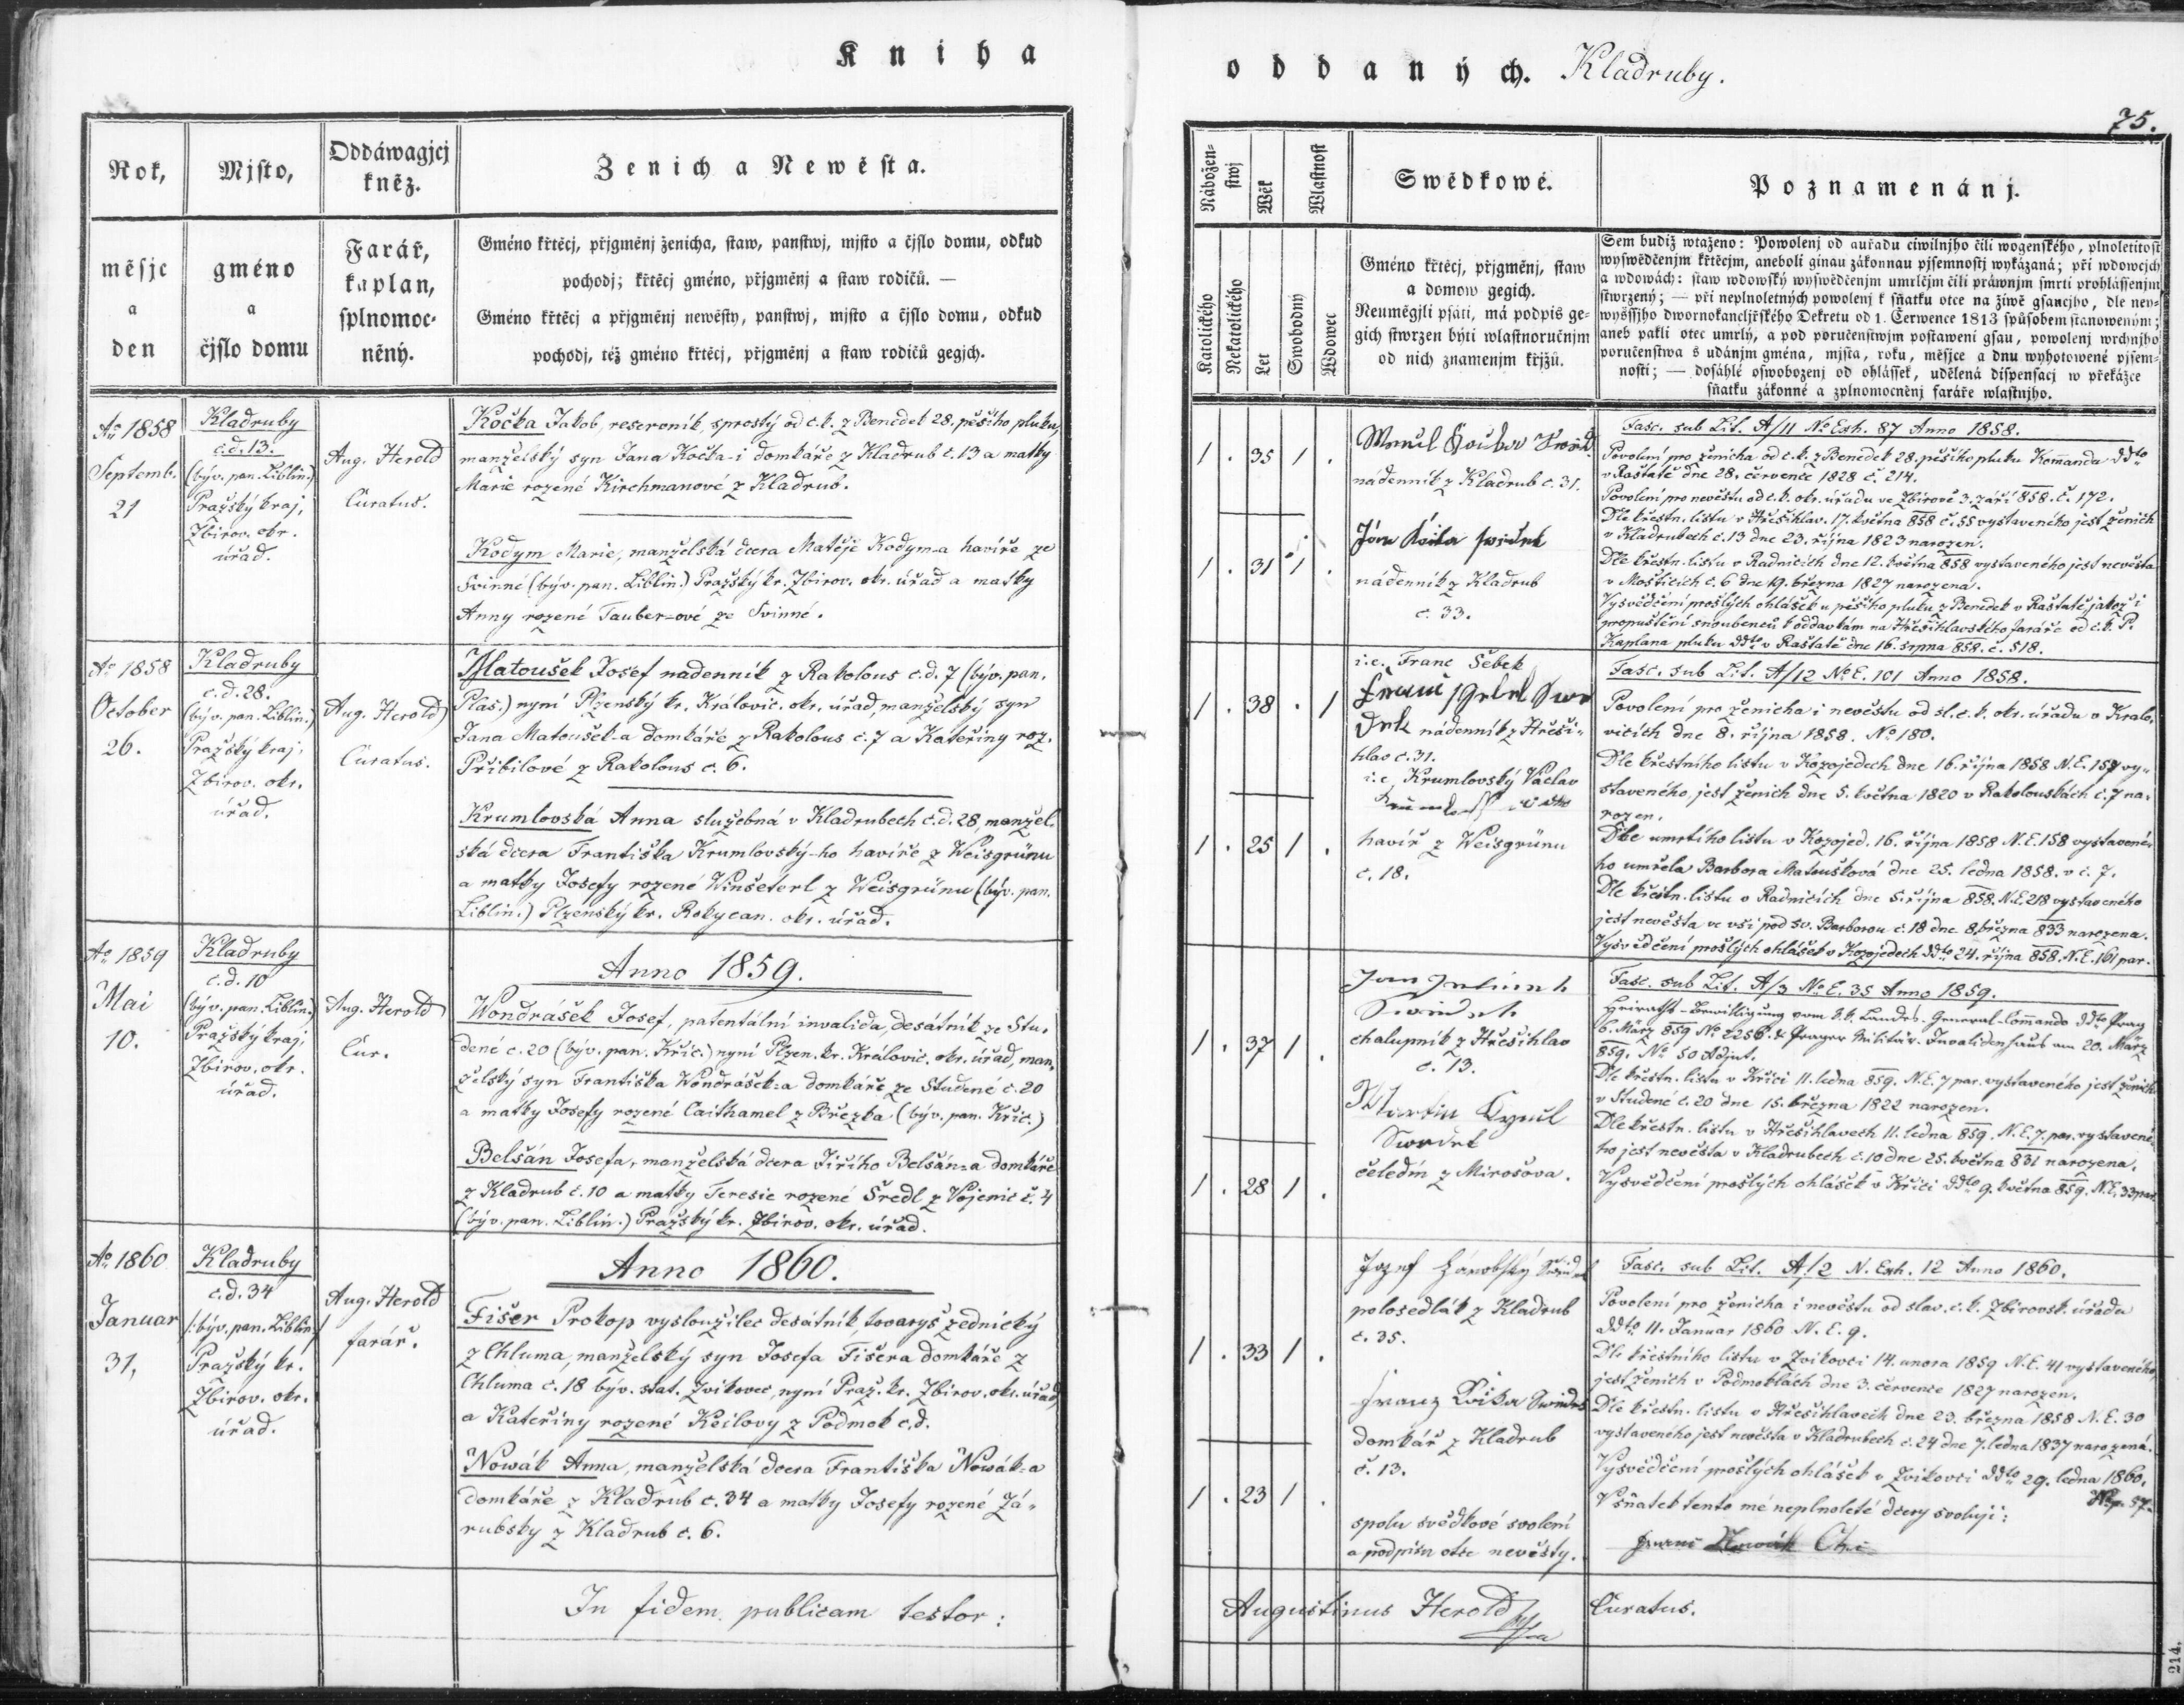 Kniha
oddaných. Kladruby.
75.
Rok,
měsjc
a
den
Mjsto,
gméno
a
čjslo domu
Oddáwagjcj
kněz.
Farář,
kaplan,
splnomoc-
něný.
Ženich a Newěsta.
Gméno křtěcj, přjgměnj ženicha, staw, panstwj, mjsto a čjslo domu, odkud
pochodj; křtěcj gméno, přjgměnj a staw rodičů. —
Gméno křtěcj a přjgměnj newěsty, panstwj, mjsto a čjslo domu, odkud
pochodj, též gméno křtěcj, přjgměnj a staw rodičů gegjch.
Nábožen-
stwj
Wěk
Wlastnost
Katolického
Nekatolického
Let
Swobodný
Wdowec
Swědkowé.
Gméno křtěcj, přjgměnj, staw
a domow gegich.
Neuměgjli psáti, má podpis ge-
gich stwrzen býti wlastnoručnjm
od nich znamenjm křjžů.
Poznamenánj.
Sem budiž wtaženo: Powolenj od auřadu ciwilnjho čili wogenského, plnoletitost
wyswědčenjm křtěcjm, aneboli ginau zákonnau pjsemnostj wykázaná; při wdowcjch
a wdowách: staw wdowský wyswědčenjm umrlčjm čili práwnjm smrti prohlássenjm
stwrzený; — při neplnoletných powolenj k sňatku otce na žiwě gsaucjho, dle ney-
wyšssjho dwornokancljřského Dekretu od 1. Čerwence 1813 spůsobem stanoweným;
aneb pakli otec umrlý, a pod poručenstwjm postaweni gsau, powolenj wrchnjho
poručenstwa s udánjm gména, mjsta, roku, měsjce a dnu wyhotowené pjsem-
nosti; — dosáhlé oswobozenj od ohlássek, udělená dispensacj w překážce
sňatku zákonné a zplnomocněnj faráře wlastnjho.
Ao 1858
Septemb.
21
Kladruby
č.d. 13.
(býv. pan. Liblin.)
Pražský kraj,
Zbirov. okr.
úřad.
Aug. Herold
Curatus.
Kočka Jakob, reservník, sprostý od c.k. z Benedek 28. pěšího pluku,
manželský syn Jana Kočka-i domkáře z Kladrub č. 13 a matky
Marie rozené Kirchmanové z Kladrub.
Kodym Marie, manželská dcera Matěje Kodym-a havíře ze
Svinné (býv. pan. Liblin.) Pražský kr. Zbirov. okr. úřad a matky
Anny rozené Tauber-ové ze Svinné.
1 . 35 1 .
1 . 31 1 .
nádenník z Kladrub č. 31.
nádenník z Kladrub
č. 33.
Fasc. sub Lit. A/11 No Exh. 87 Anno 1858.
Povolení pro ženicha od c.k. z Benedek 28. pěšího pluku Komanda ddto
v Raštatě dne 28. července 1828 č. 214.
Povolení pro nevěstu od c.k. okr. úřadu ve Zbirově 3. září 858. č. 172.
Dle křestn. listu v Hřešihlav. 17. května 858 č. 55 vystaveného jest ženich
v Kladrubech č. 13 dne 23. října 1823 narozen.
Dle křestn. listu v Radnicích dne 12. května 858 vystaveného jest nevěsta
v Mošticích č. 6 dne 19. března 1827 narozena.
Vysvědčení prošlých ohlášek u pěšího pluku z Benedek v Raštatě jakož i
propuštění snoubenců k oddavkám na Hřešihlavského faráře od c.k. P.
Kaplana pluku ddto v Raštatě dne 16. srpna 858. č. 518.
Ao 1858
October
26.
Kladruby
č.d. 28.
(býv. pan. Liblin.)
Pražský kraj,
Zbirov. okr.
úřad.
Aug. Herold
Curatus.
Matoušek Josef nadenník z Rakolous č.d. 7 (býv. pan.
Plas.) nyní Plzenský kr. Královic. okr. úřad, manželský syn
Jana Matoušek-a domkáře z Rakolous č. 7 a Kateřiny roz.
Přibilové z Rakolous č. 6.
Krumlovská Anna služebná v Kladrubech č.d. 28, manžel-
ská dcera Františka Krumlovský-ho havíře z Weisgrünu
a matky Josefy rozené Winšeterl z Weisgrünu (býv. pan.
Liblin.) Plzenský kr. Rokycan. okr. úřad.
1 . 38 . 1
1 . 25 1 .
i.e. Franc Šebek
nádenník z Hřeši-
hlav č. 31.
i.e. Krumlovský Václav
havíř z Weisgrünu
č. 18.
Fasc. sub Lit. A/12 No E. 101 Anno 1858.
Povolení pro ženicha i nevěstu od sl. c.k. okr. úřadu v Kralo-
vicích dne 8. října 1858. No 180.
Dle křestního listu v Kozojedech dne 16. října 1858 N.E. 157 vy-
staveného, jest ženich dne 5. května 1820 v Rakolouskách č. 7 na-
rozen.
Dle umrtího listu v Kozojed. 16. října 1858 N.E. 158 vystavené-
ho umřela Barbora Matoušková dne 25. ledna 1858. v č. 7.
Dle křestn. listu v Radnicích dne 5. října 858. N.E. 218 vystaveného
jest nevěsta ve vši pod sv. Barborou č. 18 dne 8. března 833 narozena.
Vysvědčení prošlých ohlášek v Kozojedech ddto 24. října 858. N.E. 161 par.
Ao 1859
Mai
10.
Kladruby
č.d. 10
(býv. pan. Liblin.)
Pražský kraj,
Zbirov. okr.
úřad.
Aug. Herold
Cur.
Anno 1859.
Wondrášek Josef, patentální invalida, desátník ze Stu-
dené č. 20 (býv. pan. Křic.) nyní Plzen. kr. Královic. okr. úřad, man-
želský syn Františka Wondrášek-a domkáře ze Studené č. 20
a matky Josefy rozené Caithamel z Březka (býv. pan. Křic.)
Belšán Josefa, manželská dcera Jiřího Belšán-a domkáře
z Kladrub č. 10 a matky Teresie rozené Šredl z Vojenic č. 4
(býv. pan. Liblin.) Pražský kr. Zbirov. okr. úřad.
1 . 37 1 .
1 . 28 1 .
chalupník z Hřešihlav
č. 13.
Martin
čeledín z Mirošova.
Fasc. sub Lit. A/3 No E. 35 Anno 1859.
Heiraths-Bewilligung vom k.k. Landes-General-Commando ddto Prag
6. März 859 No 2256 & Prager Militär-Invalidenhaus am 20. März
859. No 50 Adjut.
Dle křestn. listu v Křici 11. ledna 859. N.E. 7 par. vystaveného jest ženich
v Studené č. 20 dne 15. března 1822 narozen.
Dle křestn. listu v Hřešihlavech 11. ledna 859. N.E. 7. par. vystavené-
ho jest nevěsta v Kladrubech č. 10 dne 25. května 831 narozena.
Vysvědčení prošlých ohlášek v Křici ddto 9. května 859. N.E. 33 par.
Ao 1860
Januar
31.
Kladruby
č.d. 34
(býv. pan. Liblin.)
Pražský kr.
Zbirov. okr.
úřad.
Aug. Herold
farář.
Anno 1860.
Fišer Prokop vysloužilec desátník, tovaryš zednický
z Chluma, manželský syn Josefa Fišera domkáře z
Chluma č. 18 býv. stat. Zvikovec, nyní Praž. kr. Zbirov. okr. úřad,
a Kateřiny rozené Keilovy z Podmok č.d.
Nowák Anna, manželská dcera Františka Nowák-a
domkáře z Kladrub č. 34 a matky Josefy rozené Zá-
rubsky z Kladrub č. 6.
1 . 33 1 .
1 . 23 1 .
polosedlák z Kladrub
č. 35.
Franz
domkář z Kladrub
č. 13.
spolu svědkové svolení
a podpisu otce nevěsty.
Fasc. sub Lit. A/2 N. Exh. 12 Anno 1860.
Povolení pro ženicha i nevěstu od slav. c.k. Zbirovsk. úřadu
ddto 11. Januar 1860 N.E. 9.
Dle křestního listu v Zvikovci 14. února 1859 N.E. 41 vystaveného,
jest ženich v Podmoklách dne 3. července 1827 narozen.
Dle křestn. listu v Hřešihlavech dne 23. března 1858 N.E. 30
vystaveného jest nevěsta v Kladrubech č. 24 dne 7. ledna 1837 narozená.
Vysvědčení prošlých ohlášek v Zvikovci ddto 29. ledna 1860.
V sňatek tento mé neplnoleté dcery svoluji:
Nowák
In fidem publicam testor:
Augustinus Herold
Curatus.
214.